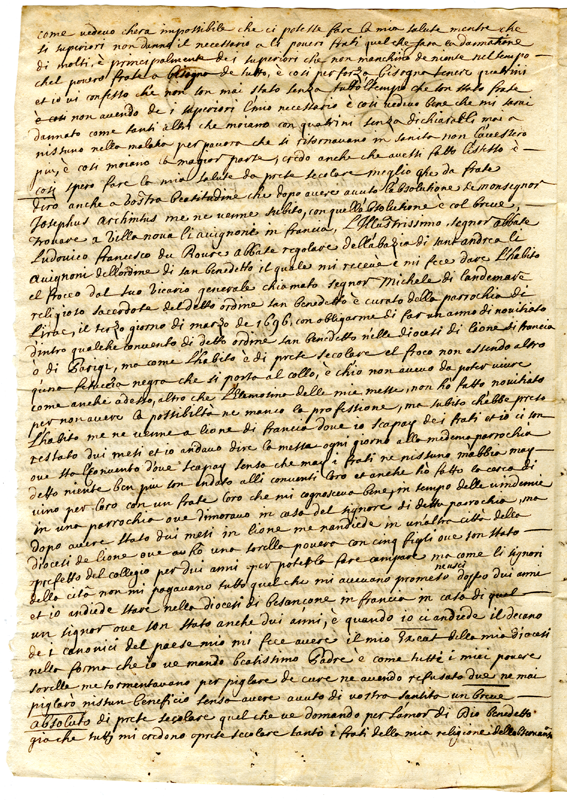 come vedevo ch'era impossibile che ci potesse fare la mia salute mentre che
si superiori non danno il necessario a li poveri frati quel che fara la dannatione
di molti, è principalmente de i superiori che non manchino de niente nel tempo
chel povero frate a bisogno de tutto, è cosi per forza bisogna tenere quatrini
et io vi confesso che non son mai stato senza tutto l tempo che son stato frate
è cosi non avendo de i superiori l mio necessario è cosi vedevo bene che mi sarei
dannato come tanti altri che moiano con quatrini senza dichiararlo mai a
nissuno nella malatia per pavora che si ritornavano in sanita non l'avessero
piu, è cosi moiano la magior parte, credo anche che avessi fatto l'istesso è
cosi spero fare la mia salute da prete secolare meglio che da frate
diro anche a vostra Beatitudine che dopo avere avuto l'absolutione de monsegnor
Josephus Archintus me ne venne subito, con quella absolutione è col breve,
trovare a villa nova li avignone in francia, L'Illustrissimo segnor abbate
Ludovico francesco du Roure abbate regolare della bazia di sant andrea li
avignoni dell'ordine di san benedetto il quale mi recevè e mi fece dare l'habito
el frocco dal suo vicario generale chiamato segnor Michele di landemare
religioso sacerdote del detto ordine san benedetto è curato della parrochia di
Lirac, il terzo giorno di marzo de 1696, con obligarme di far un anno di novitiato
d'intro qualche convento di detto ordine san benedetto nelle diocesi di lione di francia
o di Parigi, ma come l'habito è di prete secolare el froco non essendo altro
qu'una fettuccia negra che si porta al collo, è ch'io non avevo da poter vivere
come anche adesso, altro che l'elemosina delle mie messe, non ho fatto novitiato
per non avere la possibilta ne manco la professione, ma subito ch'ebbe preso
l'habito me ne venne a lione di francia dove io scapay dei frati et io ci son
restato dui mesi et io andavo dire la messa ogni giorno alla medema parrochia
ove sta l convento dove scapay sensa che may i frati ne nissuno m'abbia may
detto niente ben piu son andato alli conventi loro et anche ho fatto la cerca di
vino per loro con un frate loro che mi cognosceva bene, in tempo delle vindemie
in una parrochia ove dimoravo in casa del signore di detta parrochia, ma
dopo avere stato dui mesi in lione me n'andiede in un'altra città della
diocesi de lione ove au ho una sorella povera con cinq figli ove son stato
prefetto del collegio per dui anni per poterlo fare campare ma come li signori
della cità non mi pagavano tutto quel che mi avevano promeso nusci dopo dui anni
et io andiede stare nella diocesi di besancone in francia in casa di qual
un signor ove son stato anche dui anni, è quando io ci andiede il decano
de i canonici del paese mio mi fece avere il mio Exeat della mia diocesi
nella forma che io ve mando beatissimo Padre è come tutte i miei povere
sorelle me tormentavano per piglare de cure ne avendo refusato due ne mai
piglaro nissun beneficio sensa avere avuto di vostra santita un breve
absoluto di prete secolare quel che ve domando per l'amor di Dio benedetto
gia che tutti mi credono prete secolare tanto i frati della mia religione